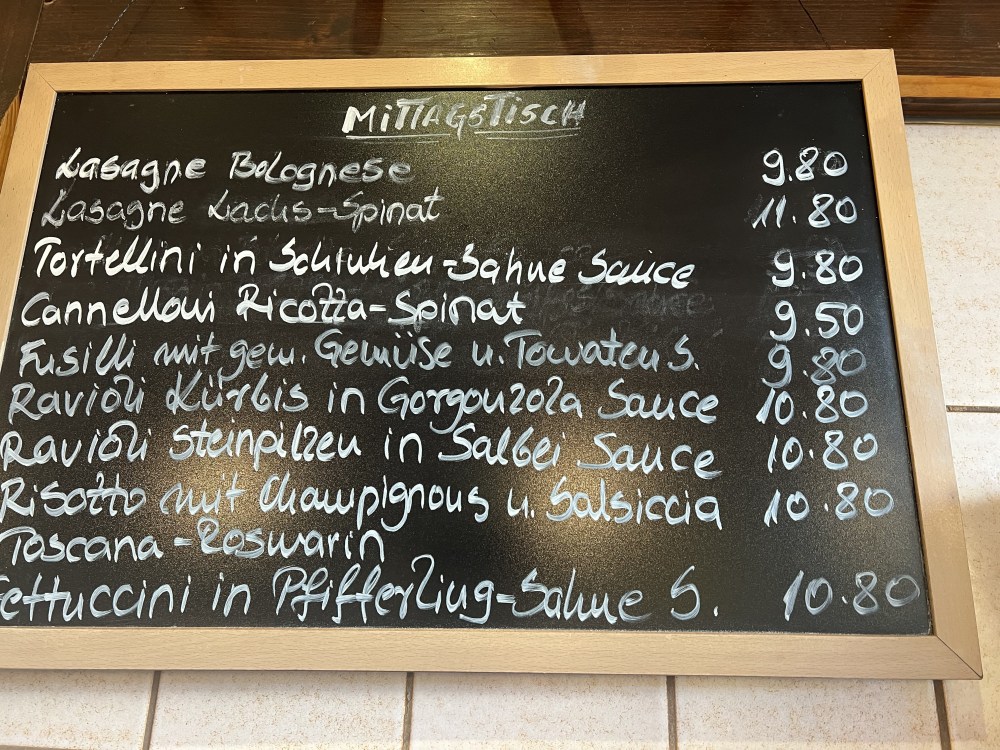 MITTAGSTISCH
Lasagne Bolognese 9.80
Lasagne Lachs-Spinat 11.80
Tortellini in Schinken-Sahne Sauce 9.80
Cannelloni Ricotta-Spinat 9.50
Fusilli mit gem. Gemüse u. Tomaten S. 9.80
Ravioli Kürbis in Gorgonzola Sauce 10.80
Ravioli Steinpilzen in Salbei Sauce 10.80
Risotto mit Champignons u. Salsiccia 10.80
Toscana-Rosmarin
Fettuccini in Pfifferling-Sahne S. 10.80